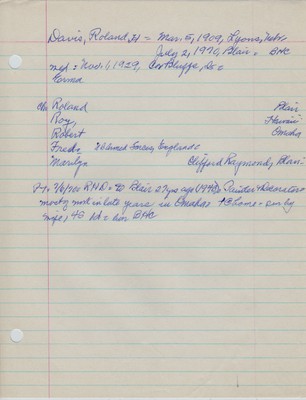 Davis, Roland, H = Mar. 5, 1909, Lyons, Nebr
July 2, 1976, Blair = BHC
med: Nov. 1, 1929, Co Bluffs, Ia =
Norma
ch Roland Blair
Roy, Hawaii
Robert Omaha
Fred = Armed Forces, England
Marilyn Clifford Raymond, Blair
7/6/76 RND = to Blair 27 yrs ago (1949) Painter & Decorator =
mostly in late years in Omaha